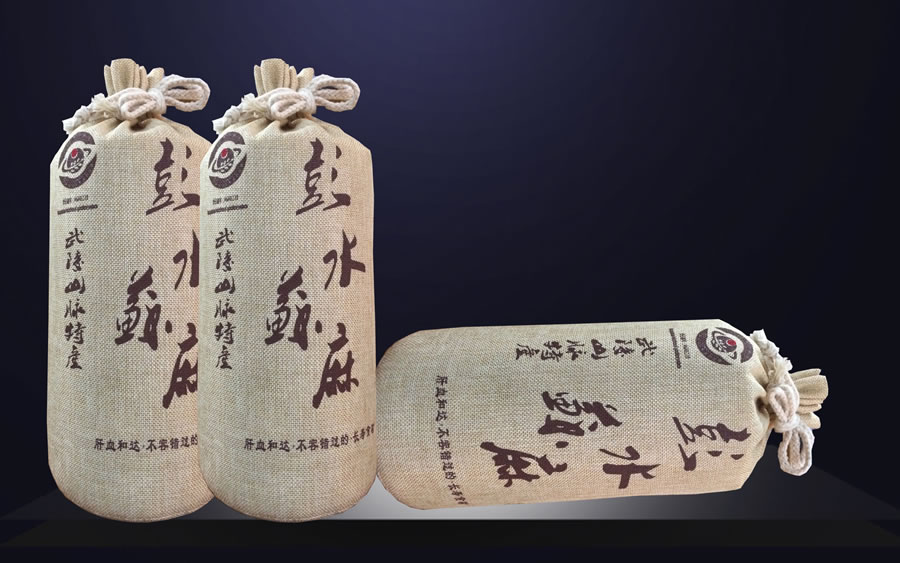 武陵山脉特产
彭水
蘇麻
肝血和达·不容错过的·
武陵山脉特产
彭水
蘇麻
肝血和达·不容错过的·长寿食
武陵山脉特产
彭水
蘇麻
肝血和达·不容错过的·长寿食